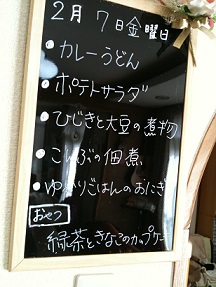 2月 7日金曜日
カレーうどん
ポテトサラダ
ひじきと大豆の煮物
こんぶの佃煮
ゆかりごはんのおにぎ
おやつ
緑茶ときなこのカップケー